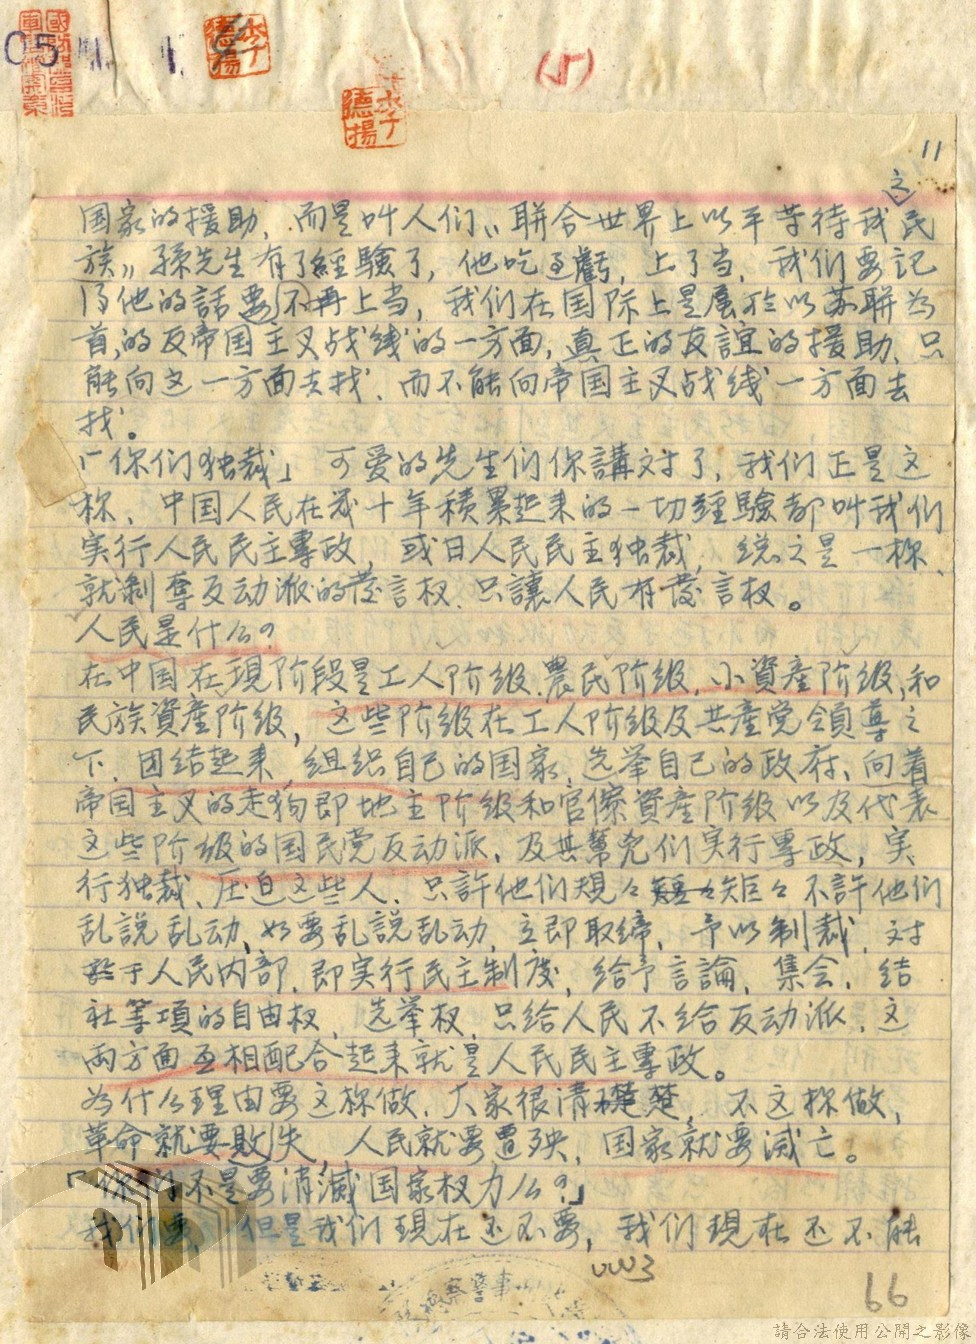 05
李德揚
李德揚
(5)
11
之
国家的援助，而是叫人们"联合世界上以平等待我民
族"孫先生有了經驗了，他吃过虧，上了当，我们要記
得他的話要不再上当，我们在国际上是属於以苏联為
首的反帝国主义战线的一方面，真正的友誼的援助、只
能向这一方面去找、而不能向帝国主义战线一方面去
找。
「你们独裁」可爱的先生们你講对了，我们正是这
样、中国人民在幾十年積累起来的一切經驗都叫我们
实行人民民主專政，或曰人民民主独裁，總之是一样、
就剝奪反动派的發言权、只讓人民有發言权。
人民是什么？
在中国在現阶段是工人阶级、農民阶级，小資產阶级，和
民族資產阶级，这些阶级在工人阶级及共產党領導之
下、团结起来，组织自己的国家，选举自己的政府、向着
帝国主义的走狗即地主阶级和官僚資產阶级以及代表
这些阶级的国民党反动派、及其幫兇们实行專政，实
行独裁、压迫这些人、只許他们規々矩々不許他们
乱說乱动、如要乱說乱动，立即取缔，予以制裁，对
于人民内部、即实行民主制度，给予言論，集会，结
社等項的自由权，选举权，只给人民不给反动派，这
两方面互相配合起来就是人民民主專政。
為什么理由要这样做、大家很清楚，不这样做，
革命就要敗失，人民就要遭殃，国家就要滅亡。
「你们不是要消滅国家权力么？」
我们要，但是我们現在还不要，我们現在还不能
66
請合法使用公開之影像